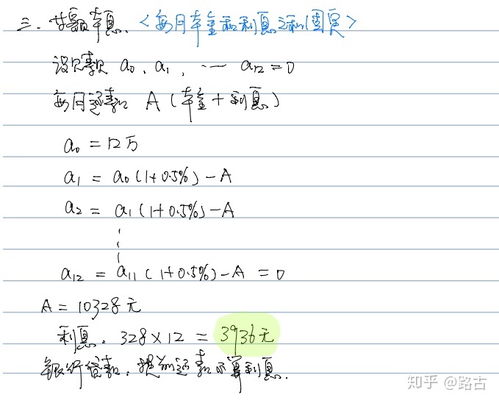 三. 等额本息. <每月本金和利息之和固定>
设欠款 a₀、a₁、… a₁₂=0
每月还款 A (本金+利息)
a₀ = 12万
a₁ = a₀(1+0.5%)-A
a₂ = a₁(1+0.5%)-A
⋮
a₁₂ = a₁₁(1+0.5%)-A = 0
A = 10328元
利息. 328×12 = 3936元
银行贷款, 提前还款不算利息.
知乎 @路古